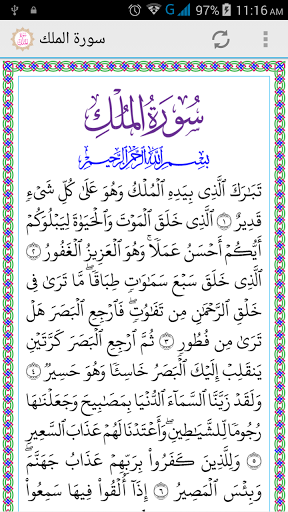 97% 11:16 AM
سورة الملك
سُورَةُ المُلْكِ
بِسْمِ ٱللَّهِ ٱلرَّحْمَٰنِ ٱلرَّحِيمِ
تَبَٰرَكَ ٱلَّذِى بِيَدِهِ ٱلْمُلْكُ وَهُوَ عَلَىٰ كُلِّ شَىْءٍۢ
قَدِيرٌ ١ ٱلَّذِى خَلَقَ ٱلْمَوْتَ وَٱلْحَيَوٰةَ لِيَبْلُوَكُمْ
أَيُّكُمْ أَحْسَنُ عَمَلًۭا ۚ وَهُوَ ٱلْعَزِيزُ ٱلْغَفُورُ ٢
ٱلَّذِى خَلَقَ سَبْعَ سَمَٰوَٰتٍۢ طِبَاقًۭا ۖ مَّا تَرَىٰ فِى
خَلْقِ ٱلرَّحْمَٰنِ مِن تَفَٰوُتٍۢ ۖ فَٱرْجِعِ ٱلْبَصَرَ هَلْ
تَرَىٰ مِن فُطُورٍۢ ٣ ثُمَّ ٱرْجِعِ ٱلْبَصَرَ كَرَّتَيْنِ
يَنقَلِبْ إِلَيْكَ ٱلْبَصَرُ خَاسِئًۭا وَهُوَ حَسِيرٌۭ ٤
وَلَقَدْ زَيَّنَّا ٱلسَّمَآءَ ٱلدُّنْيَا بِمَصَٰبِيحَ وَجَعَلْنَٰهَا
رُجُومًۭا لِّلشَّيَٰطِينِ ۖ وَأَعْتَدْنَا لَهُمْ عَذَابَ ٱلسَّعِيرِ
٥ وَلِلَّذِينَ كَفَرُوا۟ بِرَبِّهِمْ عَذَابُ جَهَنَّمَ ۖ
وَبِئْسَ ٱلْمَصِيرُ ٦ إِذَآ أُلْقُوا۟ فِيهَا سَمِعُوا۟